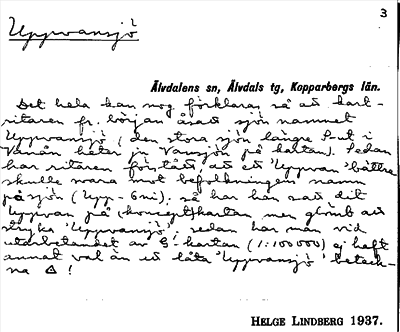 3
Uppvansjö
Älvdalens sn, Älvdals tg, Kopparbergs län.
Det hela kan nog förklaras så att kart-
ritaren fr. början åsatt sjön namnet
Uppvansjö (den stora sjön längre t.v. i
Vanån heter ju Vansjön på kartan). Sedan
har ritaren förstått, att ett 'Uppvan' bättre
skulle svara mot befolkningens namn
på sjön (Upp-), så har han satt dit
Uppvan på (koncept)kartan men glömt att
stryka 'Uppvansjö'; sedan har man vid
utarbetandet av G.-kartan (1:100000) ej haft
annat val än att låta 'Uppvansjö' beteck-
na Δ!
HELGE LINDBERG 1937.